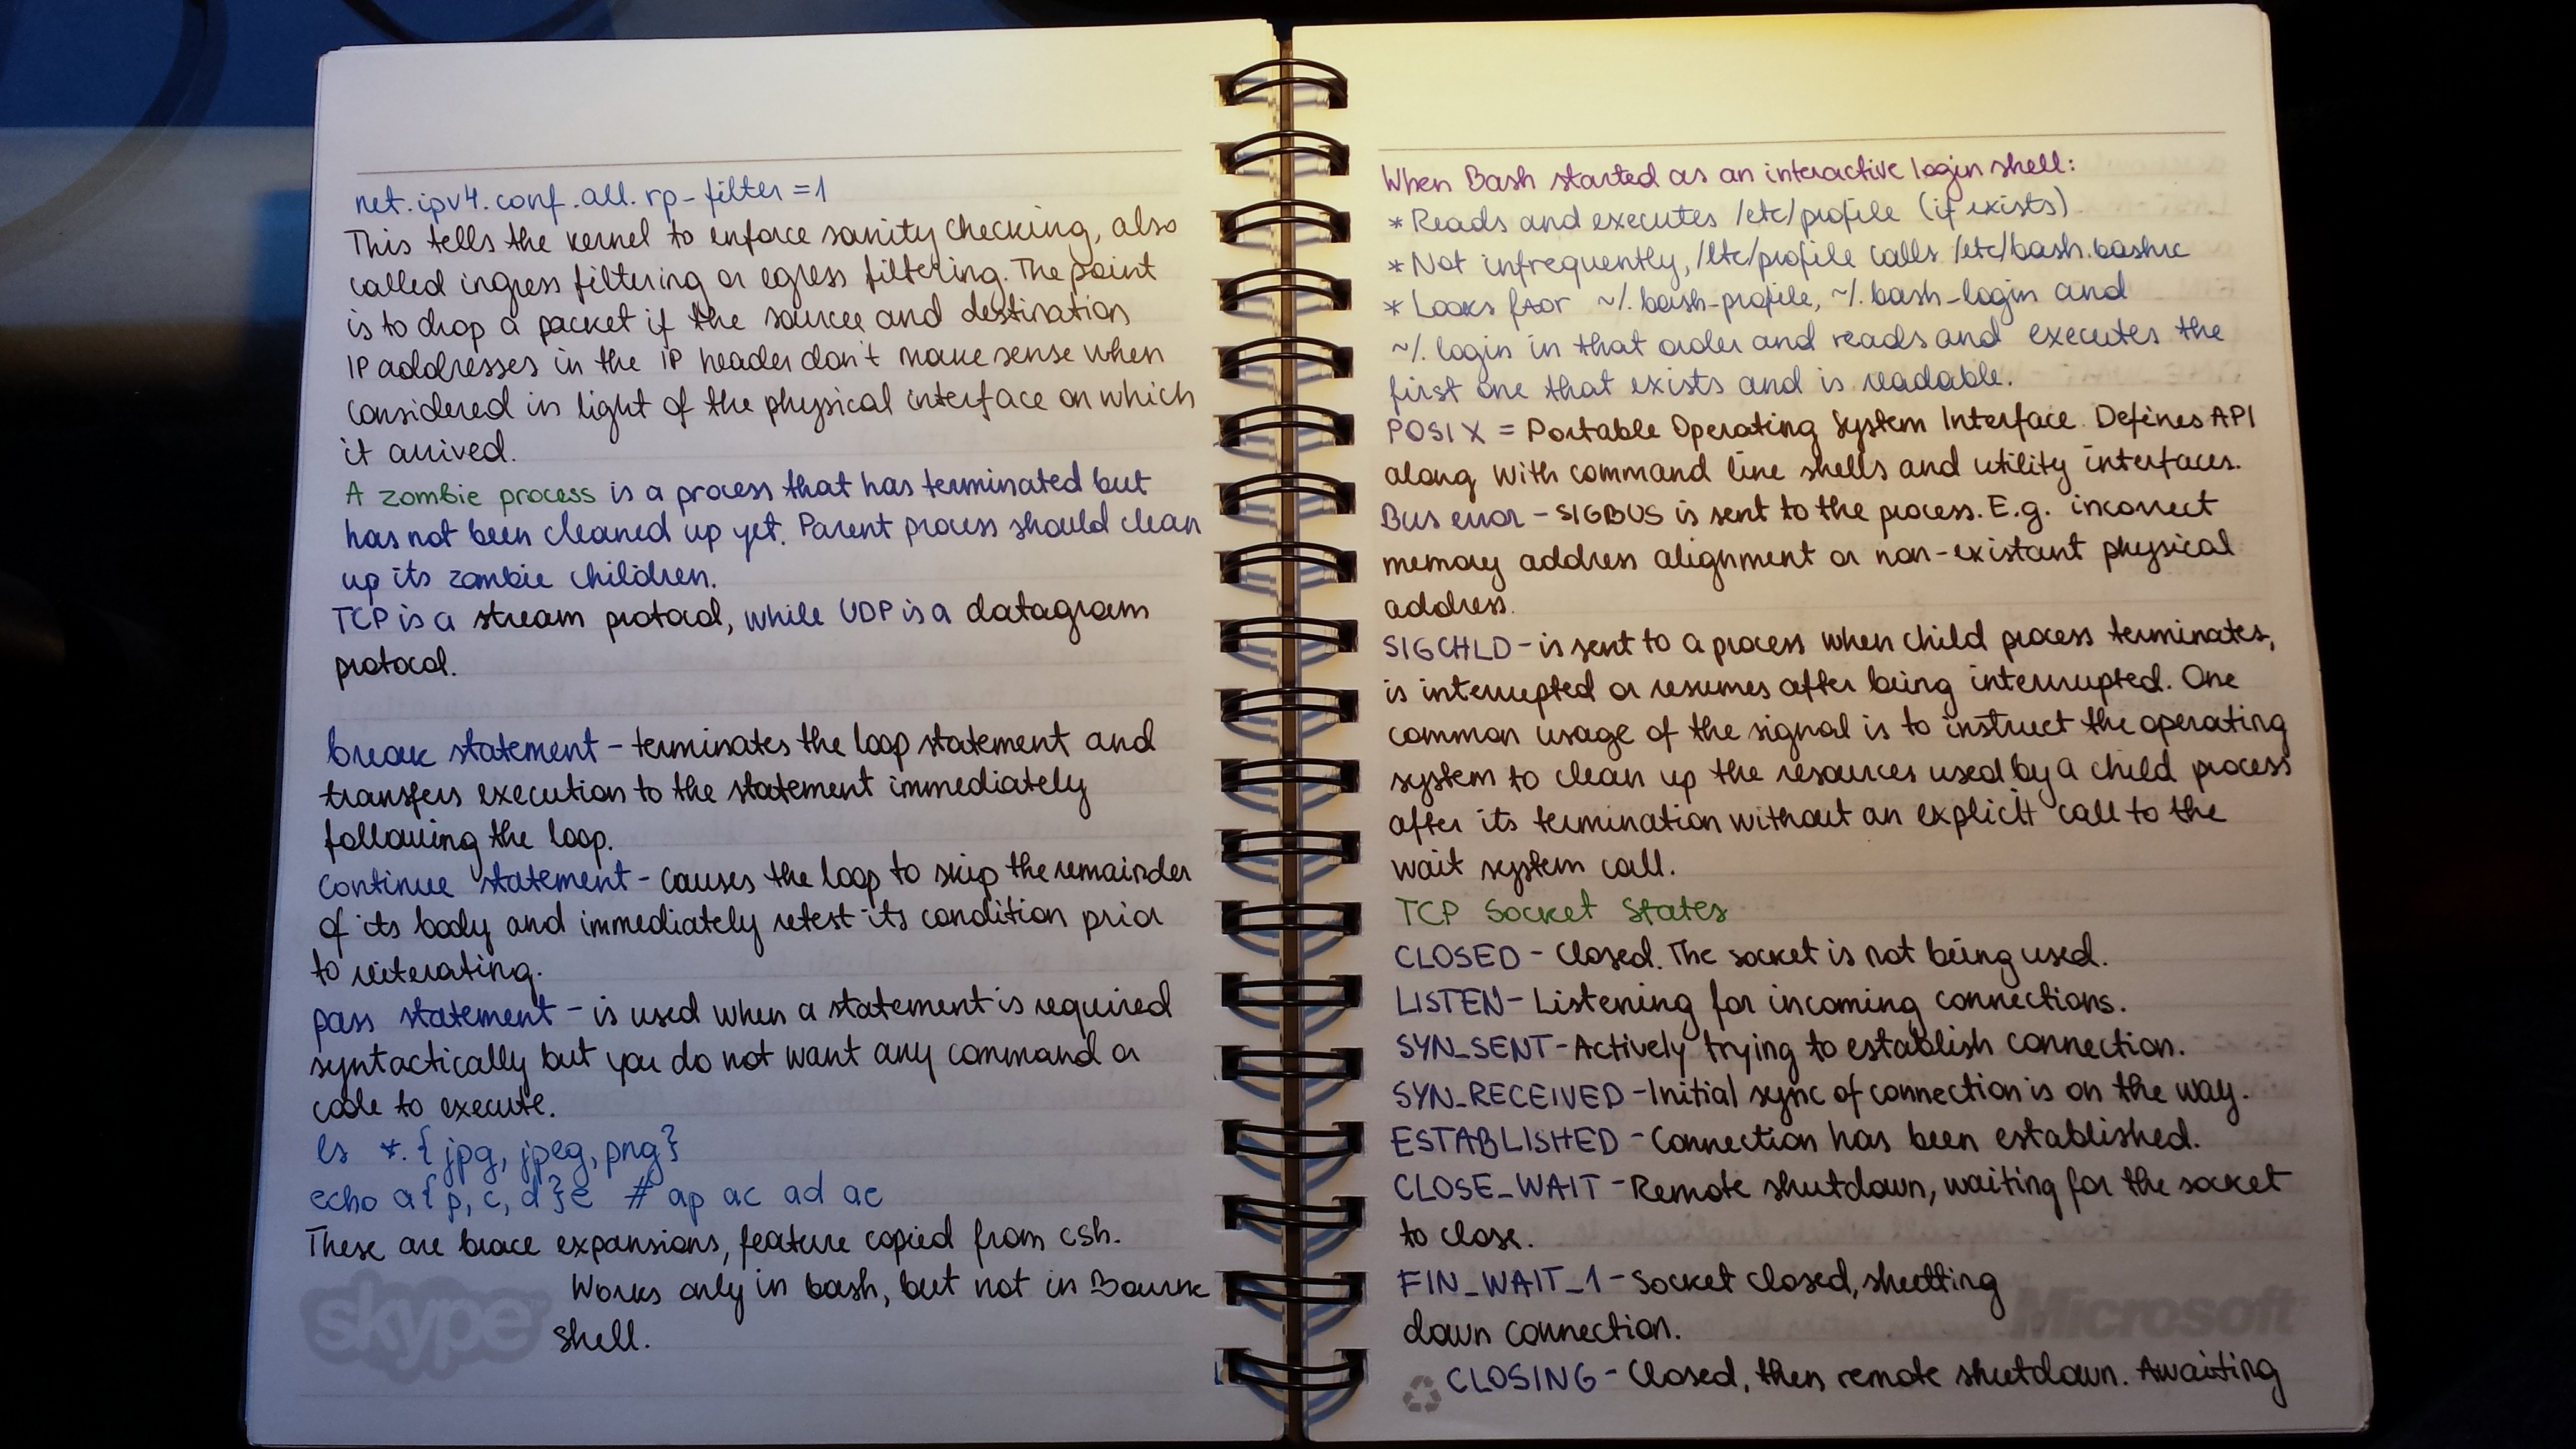 net.ipv4.conf.all.rp-filter=1
This tells the kernel to enforce sanity checking, also
called ingress filtering or egress filtering. The point
is to drop a packet if the source and destination
IP addresses in the IP header don't make sense when
considered in light of the physical interface on which
it arrived.
A zombie process is a process that has terminated but
has not been cleaned up yet. Parent process should clean
up its zombie children.
TCP is a stream protocol, while UDP is a datagram
protocol.
break statement - terminates the loop statement and
transfers execution to the statement immediately
following the loop.
continue statement - causes the loop to skip the remainder
of its body and immediately retest its condition prior
to reiterating.
pass statement - is used when a statement is required
syntactically but you do not want any command or
code to execute.
ls *.{jpg, jpeg, png}
echo a{p, c, d}e # ap ac ad ae
These are brace expansions, feature copied from csh.
Works only in bash, but not in Bourne
shell.
skype
When Bash started as an interactive login shell:
* Reads and executes /etc/profile (if exists)
* Not infrequently, /etc/profile calls /etc/bash.bashrc
* Looks for ~/.bash-profile, ~/.bash-login and
~/.login in that order and reads and executes the
first one that exists and is readable.
POSIX = Portable Operating System Interface. Defines API
along with command line shells and utility interfaces.
Bus error - SIGBUS is sent to the process. E.g. incorrect
memory address alignment or non-existant physical
address.
SIGCHLD - is sent to a process when child process terminates,
is interrupted or resumes after being interrupted. One
common usage of the signal is to instruct the operating
system to clean up the resources used by a child process
after its termination without an explicit call to the
wait system call.
TCP Socket States
CLOSED - Closed. The socket is not being used.
LISTEN - Listening for incoming connections.
SYN_SENT - Actively trying to establish connection.
SYN_RECEIVED - Initial sync of connection is on the way.
ESTABLISHED - Connection has been established.
CLOSE_WAIT - Remote shutdown, waiting for the socket
to close.
FIN_WAIT_1 - Socket closed, shutting
down connection.
Microsoft
CLOSING - Closed, then remote shutdown. Awaiting